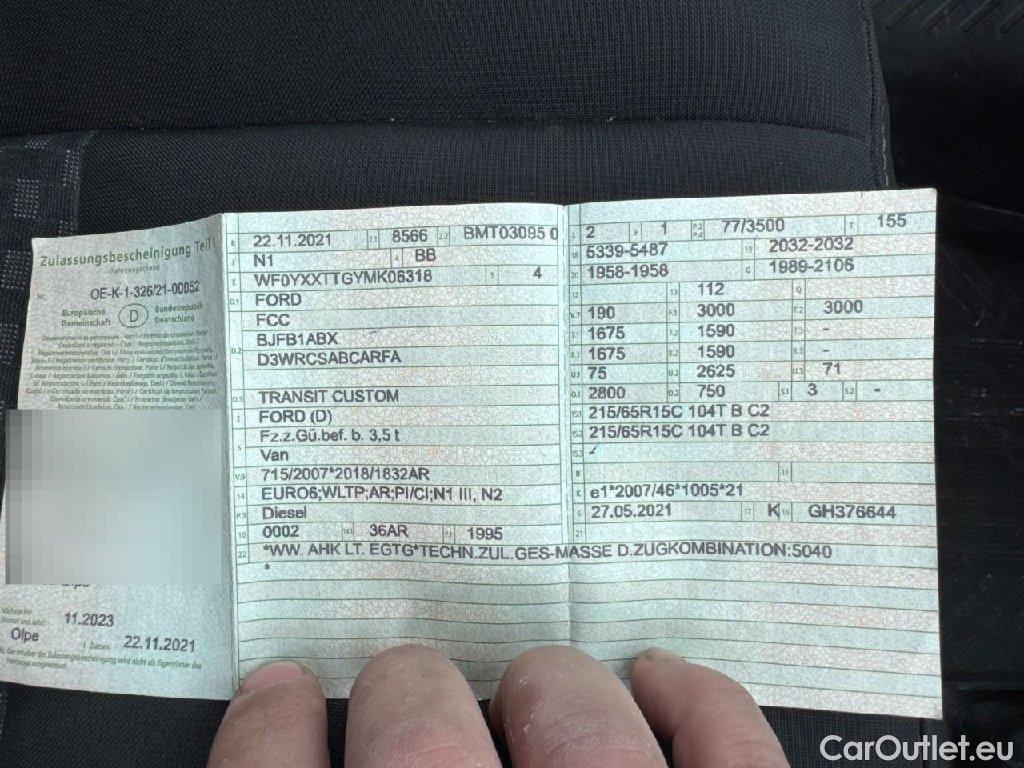 Zulassungsbescheinigung Teil I
(Fahrzeugschein)
Nr. OE-K-1-326/21-00052
Europäische Gemeinschaft D Bundesrepublik Deutschland
11.2023
Olpe
22.11.2021
B 22.11.2021 2.1 8566 2.2 BMT03095 0
J N1 4 BB
E WF0YXXTTGYMK06318 3 4
D.1 FORD
FCC
D.2 BJFB1ABX
D3WRCSABCARFA
D.3 TRANSIT CUSTOM
2 FORD (D)
5 Fz.z.Gü.bef. b. 3,5 t
Van
V.9 715/2007*2018/1832AR
14 EURO6;WLTP;AR;PI/CI;N1 III, N2
P.3 Diesel
10 0002 14.1 36AR P.1 1995
22 *WW. AHK LT. EGTG*TECHN.ZUL.GES-MASSE D.ZUGKOMBINATION:5040
*
L 2 9 1 P.2 P.4 77/3500 T 155
18 5339-5487 19 2032-2032
20 1958-1958 G 1989-2106
12 13 112 Q
V.7 190 F.1 3000 F.2 3000
7.1 1675 7.2 1590 7.3 -
8.1 1675 8.2 1590 8.3 -
U.1 75 U.2 2625 U.3 71
O.1 2800 O.2 750 S.1 3 S.2 -
15.1 215/65R15C 104T B C2
15.2 215/65R15C 104T B C2
15.3
R 11
K e1*2007/46*1005*21
6 27.05.2021 17 K 16 GH376644
21
CarOutlet.eu